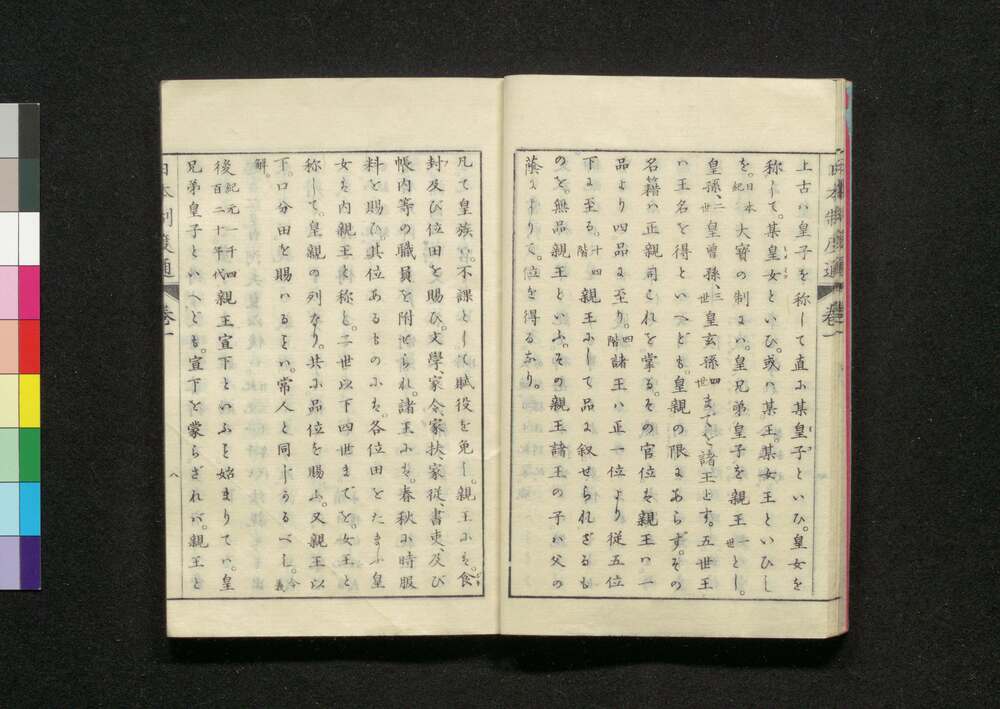 上古ハ皇子を称して直ニ某皇子といひ。皇女を
称して。某皇女といひ。或ハ某王。某女王といひし
を。日本紀大寳の制にハ。皇兄弟皇子を親王一世とし。
皇孫、二世皇曽孫、三世皇玄孫四世までを諸王とす。五世王
ハ王名を得といへども。皇親の限にあらず。その
名籍ハ正親司これを掌る。その官位を親王ハ一
品より四品に至り。四階諸王ハ正一位より従五位
下に至る。十四階親王にして品に叙せられざるも
のを無品親王といふ。その親王諸王の子ハ父の
蔭によりて。位を得るなり。
日本制度通 巻一
凡て皇族ハ。不課として賦役を免し。親王にハ。食
封及び位田を賜ひ。文學家令、家扶、家従、書吏、及び
帳内等の職員を附せられ。諸王にハ。春秋に時服
料を賜ひ。其位あるものにハ。各位田をたまふ皇
女を内親王と称し。二世以下四世まてを。女王と
称して。皇親の列なり。共に品位を賜ふ。又親王以
下。口分田を賜ハるハ。常人と同じうるべし。令義
解。
後紀元一千四百二十年代親王宣下といふこと始まりてハ。皇
兄弟皇子といへども。宣下を蒙らざれバ。親王と
日本制度通 巻一
八